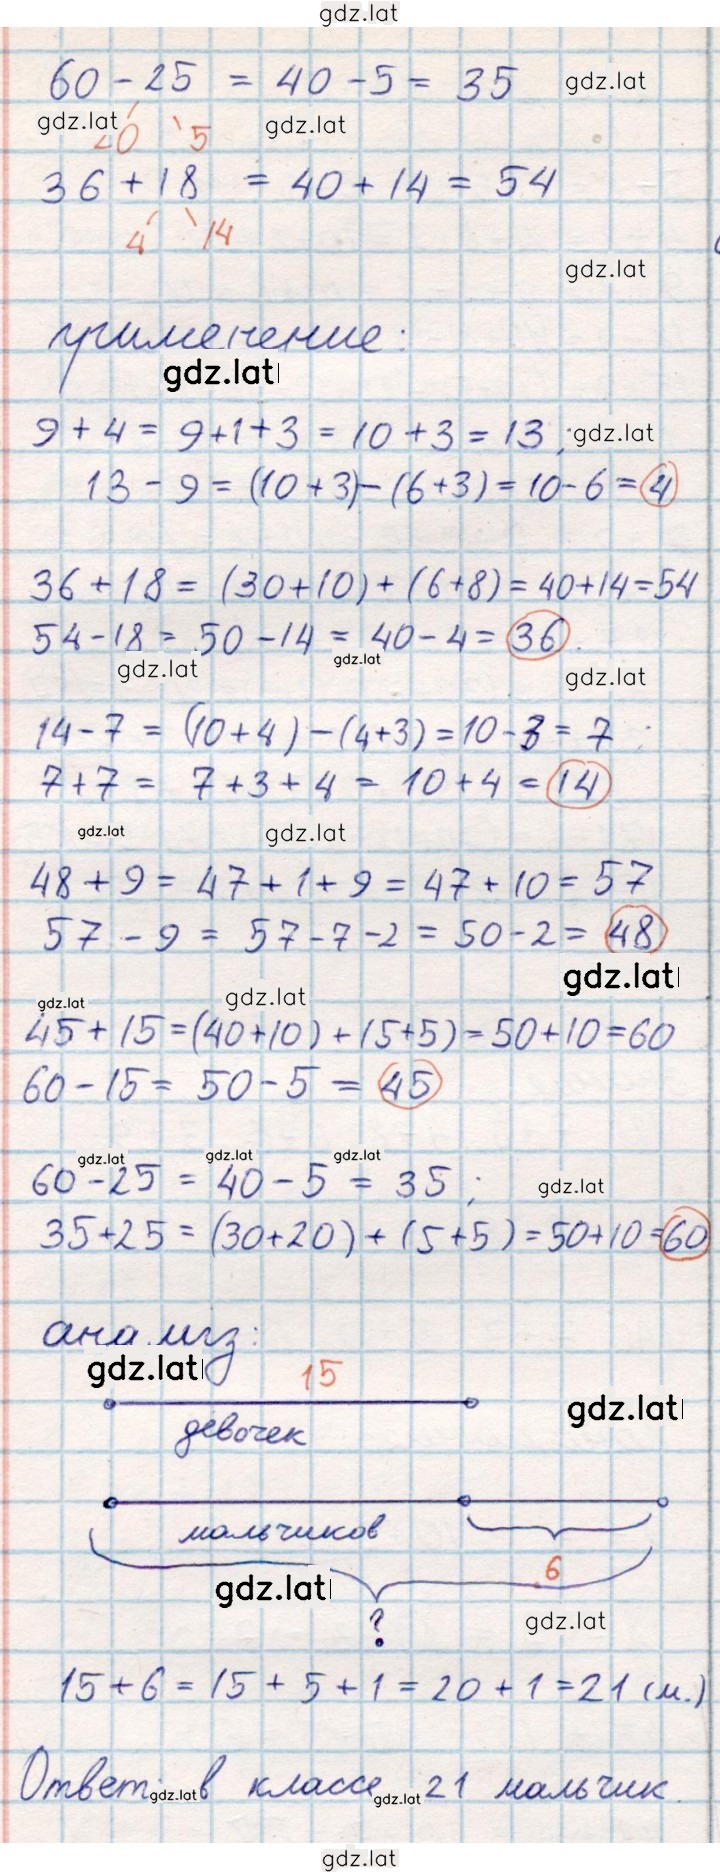 gdz.lat
60 - 25 = 40 - 5 = 35 gdz.lat
gdz.lat 20 5 gdz.lat
36 + 18 = 40 + 14 = 54
4 14
gdz.lat
применение:
gdz.lat
9 + 4 = 9+1+3 = 10 + 3 = 13, gdz.lat
13 - 9 = (10 + 3) - (6+3) = 10 - 6 = 4
36 + 18 = (30+10) + (6+8) = 40+14 = 54
54 - 18 = 50 - 14 = 40 - 4 = 36.
gdz.lat gdz.lat gdz.lat
14 - 7 = (10+4) - (4+3) = 10 - 3 = 7;
7 + 7 = 7 + 3 + 4 = 10 + 4 = 14
gdz.lat gdz.lat
48 + 9 = 47 + 1 + 9 = 47 + 10 = 57
57 - 9 = 57 - 7 - 2 = 50 - 2 = 48
gdz.lat
gdz.lat gdz.lat
45 + 15 = (40+10) + (5+5) = 50+10 = 60
60 - 15 = 50 - 5 = 45
gdz.lat gdz.lat gdz.lat
60 - 25 = 40 - 5 = 35; gdz.lat
35+25 = (30+20) + (5+5) = 50+10 = 60
анализ:
gdz.lat 15
gdz.lat
девочек
мальчиков
6
gdz.lat
? gdz.lat
15 + 6 = 15 + 5 + 1 = 20 + 1 = 21 (м.)
Ответ: gdz.lat в классе gdz.lat 21 мальчик.
gdz.lat